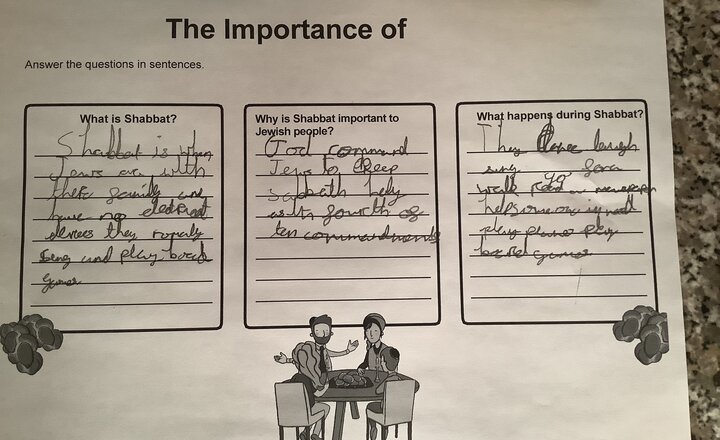 The Importance of
Answer the questions in sentences.
What is Shabbat?
Shabbat is when
Jews are with
there family and
have no
devices they normaly
sing and play board
games
Why is Shabbat important to
Jewish people?
God command
Jews to keep
sabbath holy
as its fourth of
ten commandments
What happens during Shabbat?
They dance laugh
sing go for a
walk read a newspaper
help someone in need
play piano play
board games